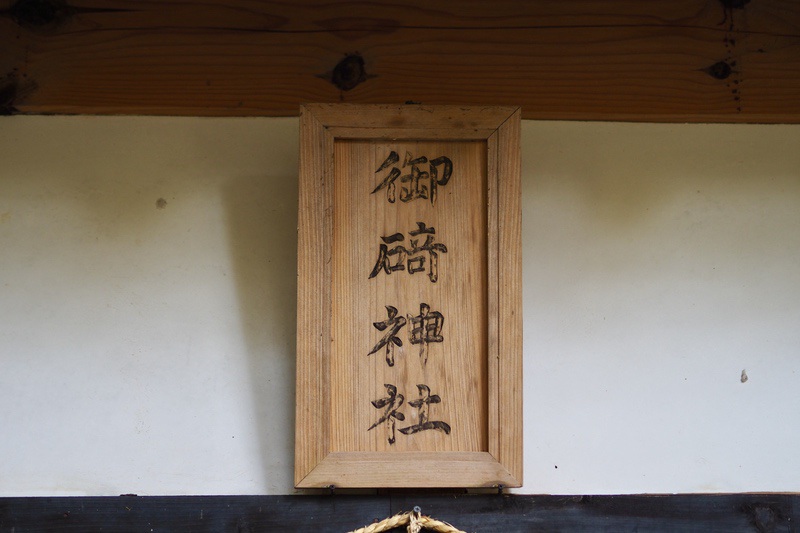 御碕神社